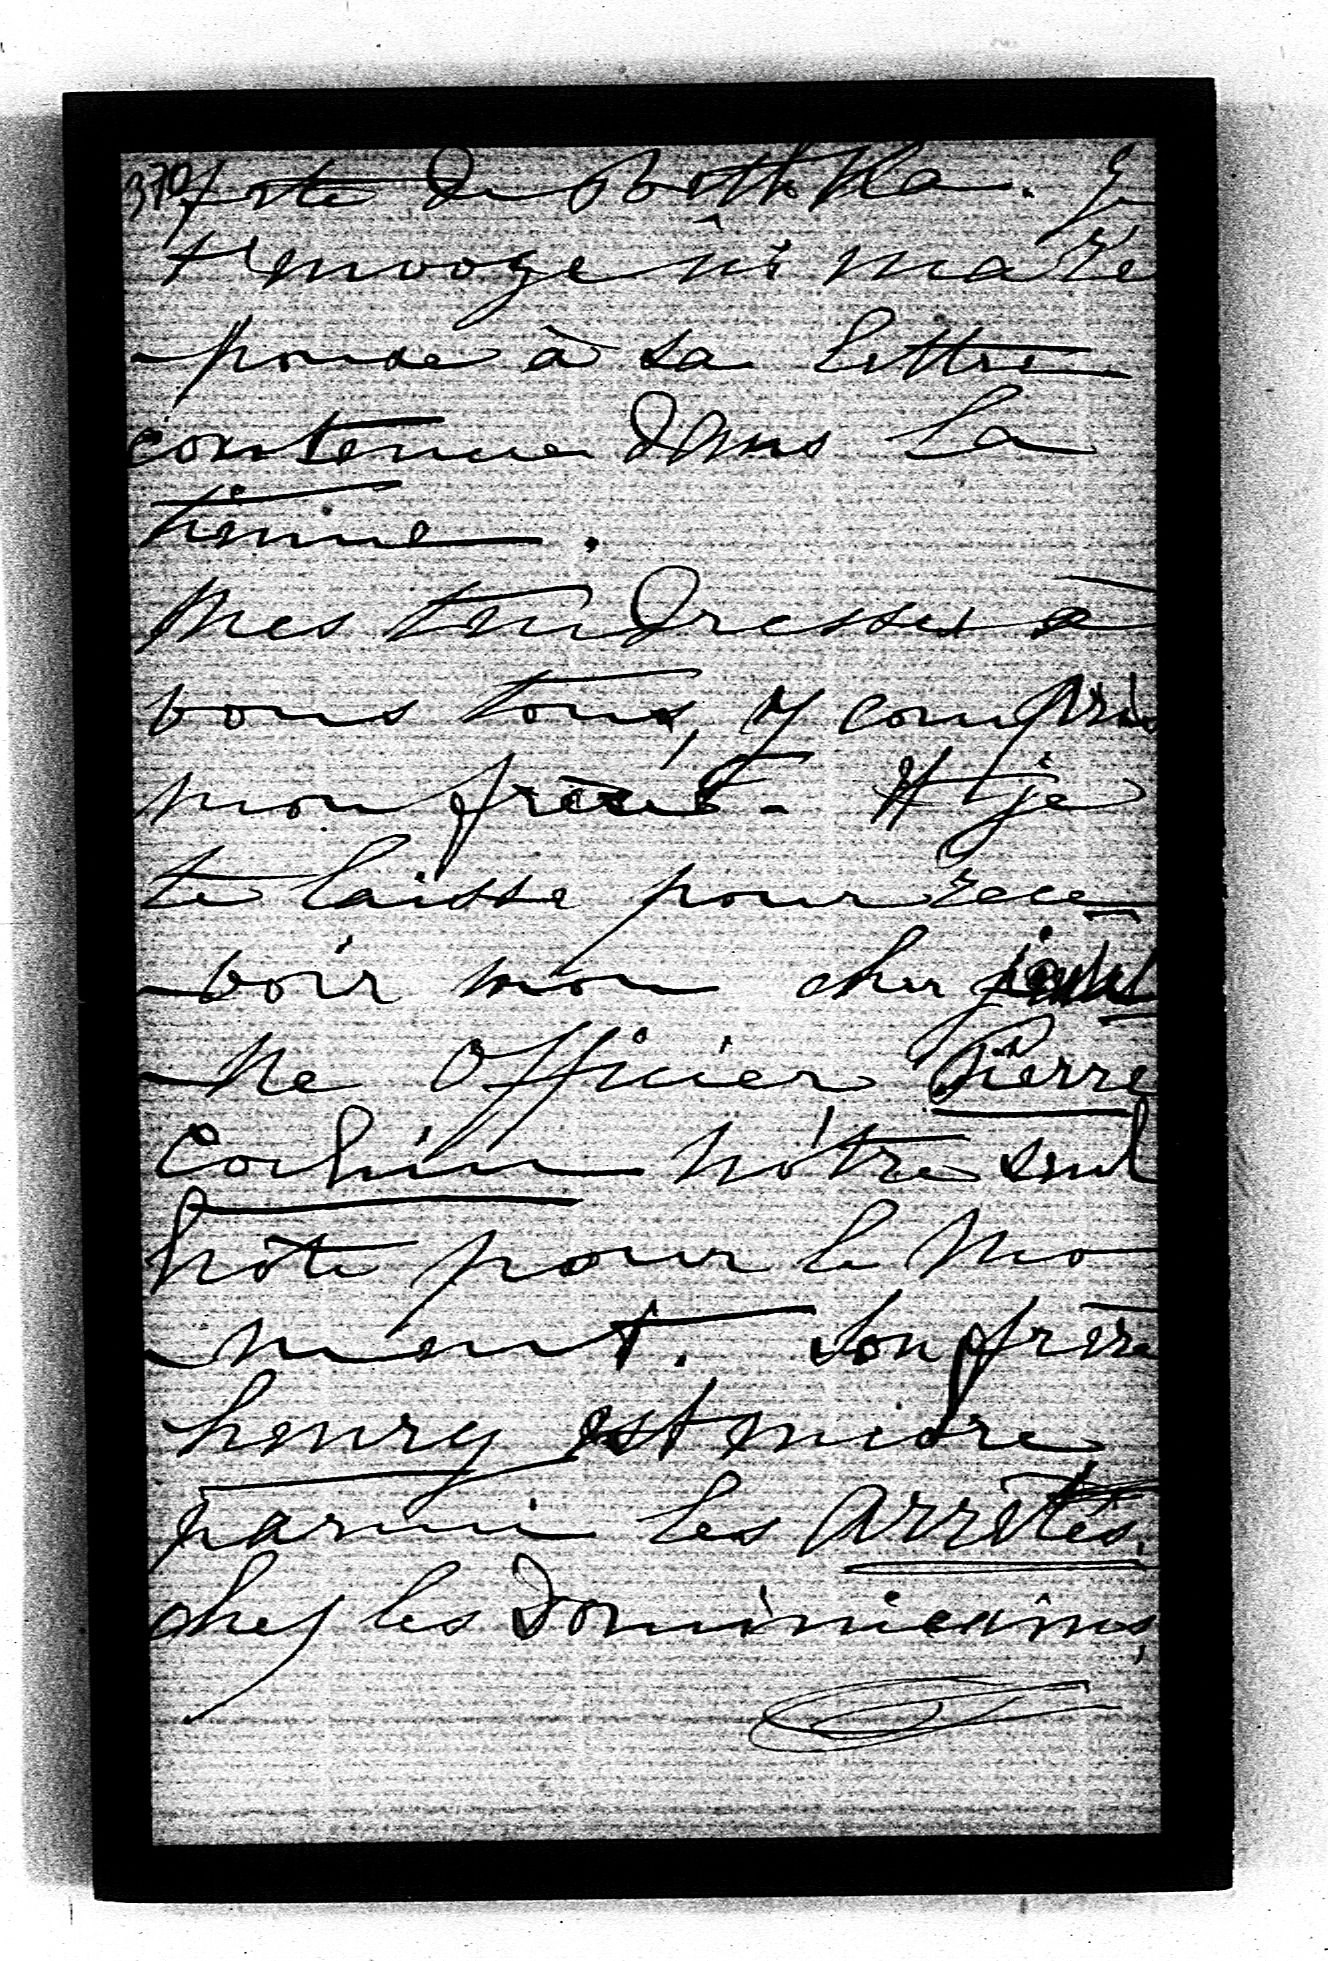 370 poste de Bothka. Je
t'envoye ici ma ré
-ponse à sa lettre
contenue dans la
tienne.
Mes tendresses à
vous tous, y compris
mon frère. Et je
te laisse pour rece
-voir mon cher jeu
-ne Officier Pierre
Cochin nôtre seul
hôte pour le mo
-ment. Son frère
henry est
parmi les arrêtés,
chez les Dominicains,